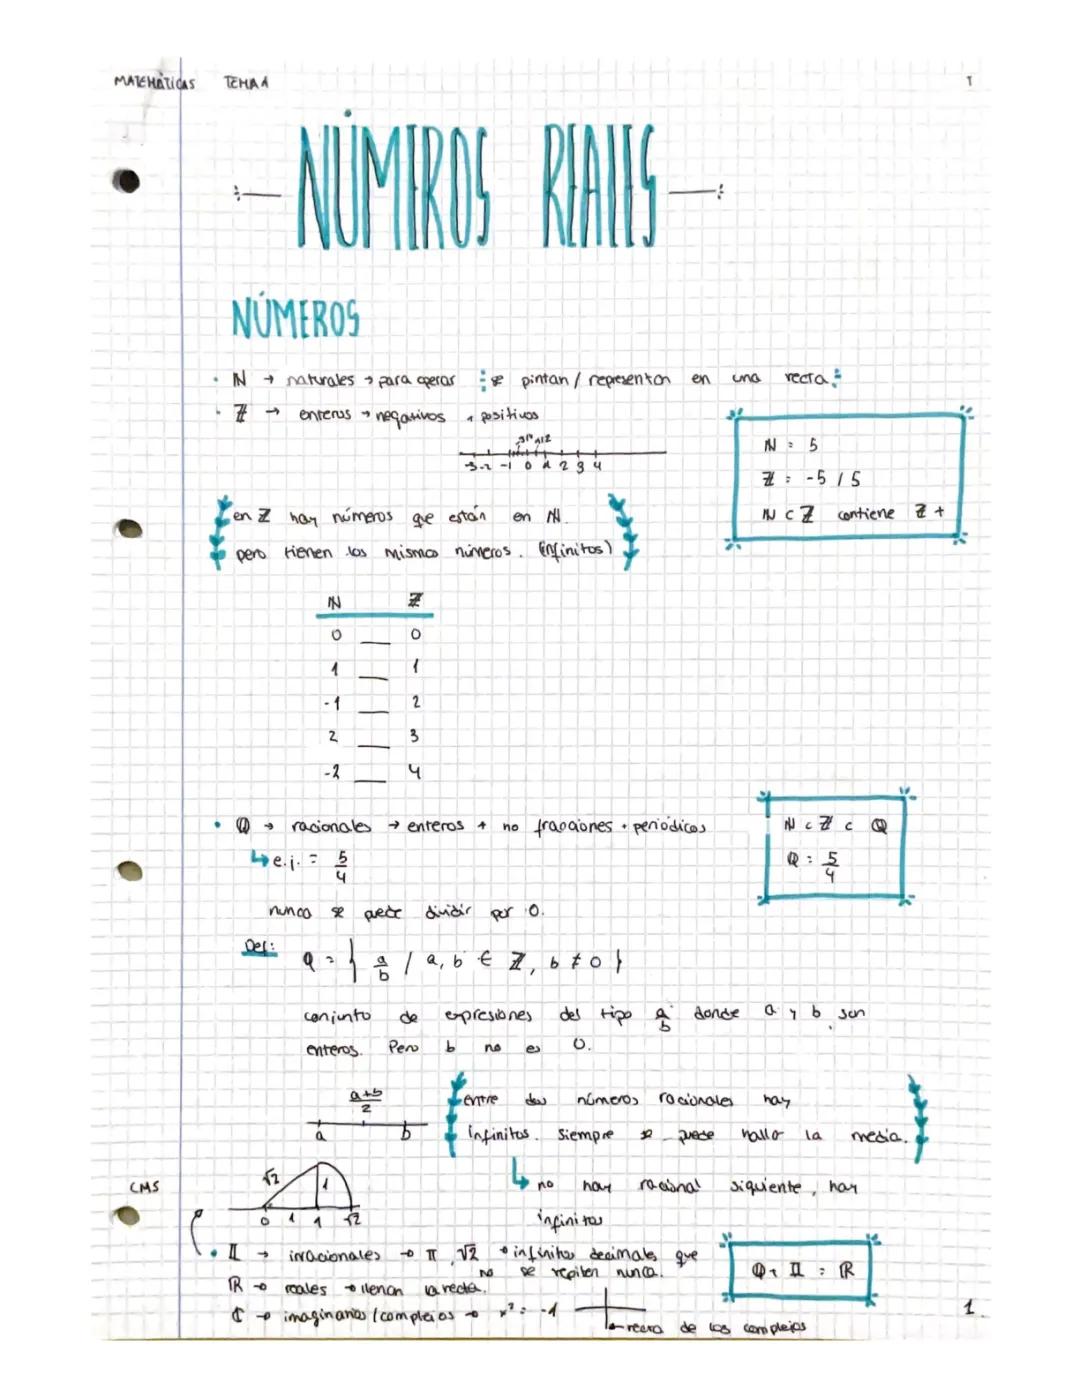 MATEMÁTICAS TEMA 1
NÚMEROS REALES
NÚMEROS
• ℕ → naturales → para operar se pintan / representan en una recta
• ℤ → enteros → negativos + positivos
-3 -2 -1 0 1 2 3 4
ℕ = 5
ℤ = -5 / 5
ℕ ⊂ ℤ contiene ℤ +
en ℤ hay números que están en ℕ.
pero tienen los mismos números. (infinitos)
ℕ ℤ
0 __ 0
1 __ 1
-1 __ 2
2 __ 3
-2 __ 4
• ℚ → racionales → enteros + no fracciones + periódicos
↳ e.j. = 5/4
ℕ ⊂ ℤ ⊂ ℚ
ℚ = 5/4
nunca se puede dividir por 0.
Def: Q = { a/b / a, b ∈ ℤ, b ≠ 0 }
conjunto de expresiones del tipo a/b donde a y b son
enteros. Pero b no es 0.
a+b/2
a b
entre dos números racionales hay
infinitos. Siempre se puede hallar la media.
↳ no hay racional siguiente, hay
infinitos
CMS
√2 1
0 1 1 √2
• 𝕀 → irracionales → π, √2 • infinitos decimales que
no se repiten nunca.
ℝ → reales → llenan la recta.
ℂ → imaginarios / complejos → x² = -1
recta de los complejos
ℚ + 𝕀 = ℝ
1